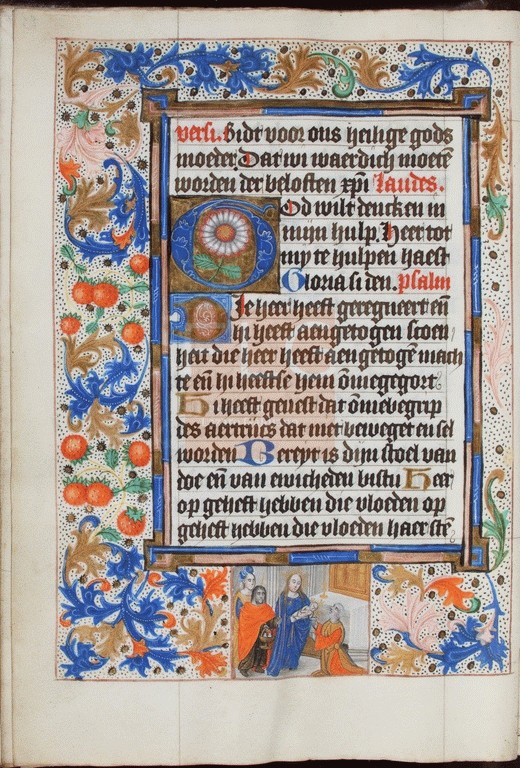 versi. Bidt voor ons heilighe gods
moeder. Dat wi waerdich moetē
worden der beloften xp̄i Laudes.
God wilt dencken in
mijn hulp. Heer tot
my te hulpen haest
Gloria si den. psalm
Die heer heeft geregneert eñ
hi heeft aengetogen scoen
heit die heer heeft aengetogē mach
te eñ hi heeftse hem ōmegegort
Hi heeft gevest dat ōmebegrip
des aertrijcs dat niet beweget en sel
worden Bereyt is dijn stoel van
doe eñ van ewicheden bistu Heer
op geheft hebben die vloeden op
geheft hebben die vloeden haer stē